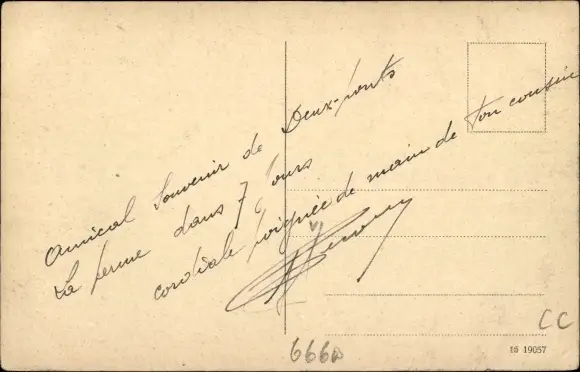 Amical Souvenir de Deux-ponts
La ferme dans 7 Jours
cordiale poignée de main de Ton cousin
666A
CC
16 19057